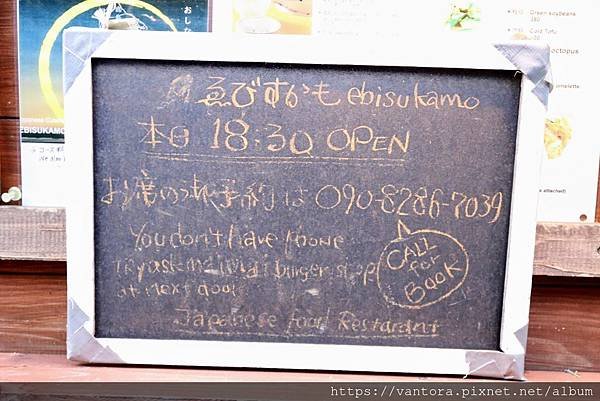 おした
Green soybeans
380
Cold Tofu
octopus
omelette
EBISUKAMO
ゑびすかも ebisukamo
本日 18:30 OPEN
お席の 予約は 090-8286-7039
You don't have phone
CALL
for
BOOK
Try ask me burger shop
at next door
Japanese food Restarant
https://vantora.pixnet.net/album